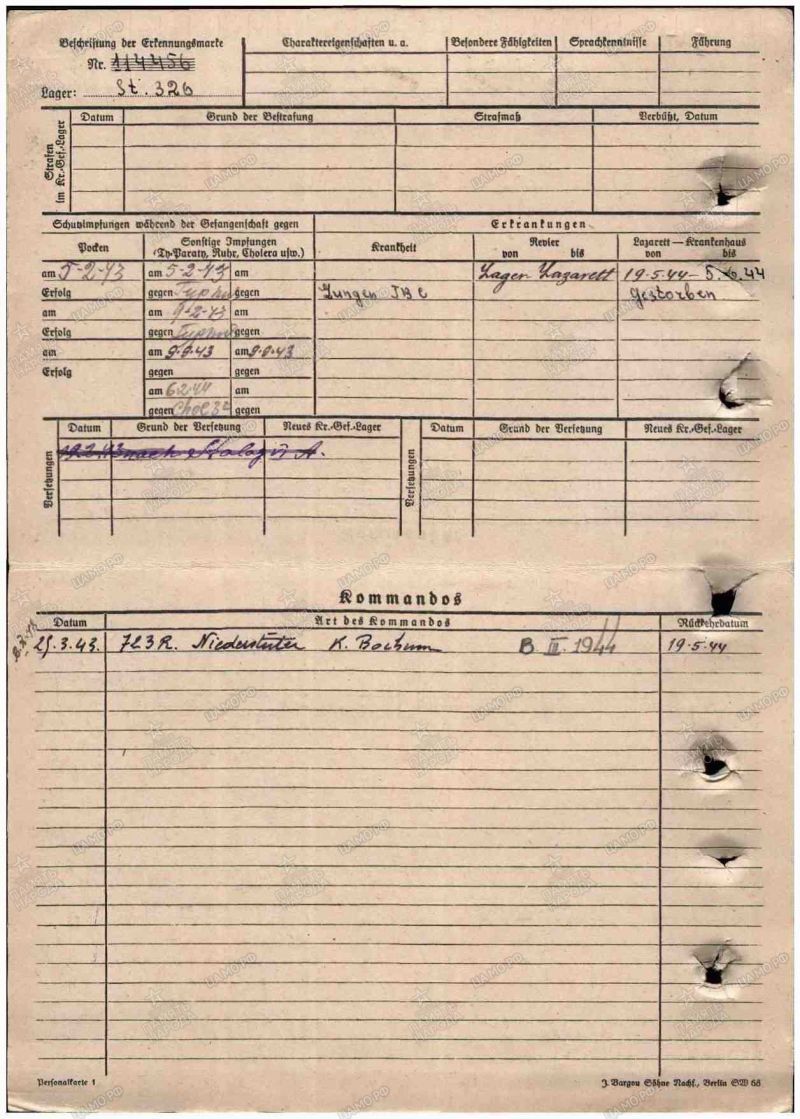 Beschriftung der Erkennungsmarke
Nr. 114456
Lager: St. 326
Charaktereigenschaften u. a. Besondere Fähigkeiten Sprachkenntnisse Führung
Strafen im Kr.-Gef.-Lager
Datum Grund der Bestrafung Strafmaß Verbüßt, Datum
Schutzimpfungen während der Gefangenschaft gegen Erkrankungen
Pocken Sonstige Impfungen (Ty-Paraty, Ruhr, Cholera usw.) Krankheit Revier von bis Lazarett — Krankenhaus von bis
am 5-2-43 am 5-2-43 am Lager Lazarett 19.5.44 - 5.6.44
Erfolg gegen Typhus gegen Lungen TBC Gestorben
am am 9-2-43 am
Erfolg gegen Typhus gegen
am am 9.9.43 am 9.9.43
Erfolg gegen gegen
am 6.2.44 am
gegen gegen
Versetzungen
Datum Grund der Versetzung Neues Kr.-Gef.-Lager
nach Stalag VI A.
Versetzungen
Datum Grund der Versetzung Neues Kr.-Gef.-Lager
Kommandos
Datum Art des Kommandos Rückkehrdatum
25.3.43. 723 R. K. Bochum B III. 1944 19.5.44
Personalkarte 1
J. Bargou Söhne Nachf., Berlin SW 68
ПАМЯТЬ НАРОДА
ЦАМО.РФ